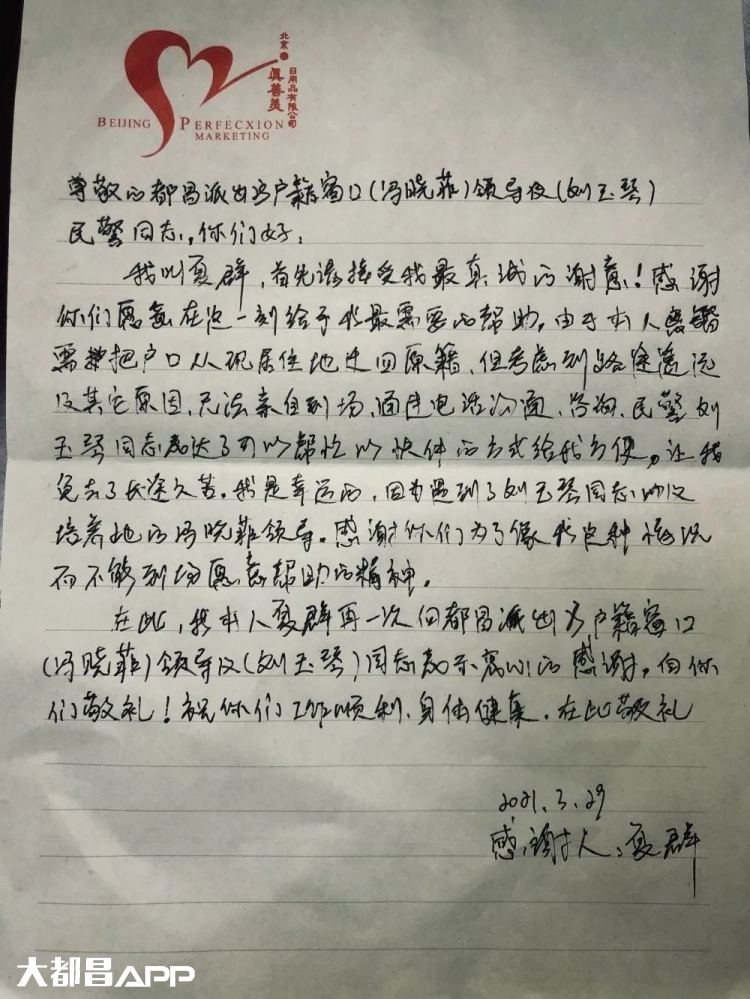 北京
真善美
日用品有限公司
BEIJING PERFECXION
MARKETING
尊敬的都昌派出所户籍窗口(冯晓菲)领导及(刘玉琴)
民警同志,你们好:
我叫夏群,首先请接受我最真诚的谢意!感谢
你们愿意在这一刻给予我最需要的帮助。由于本人
需要把户口从现居住地迁回原籍,但考虑到路途遥远
及其它原因,无法亲自到场,通过电话沟通、咨询,民警刘
玉琴同志表达了可以帮忙以快件的方式给我方便,让我
免去了长途之苦。我是幸运的,因为遇到了刘玉琴同志以及
培养她的冯晓菲领导。感谢你们为了像我这种情况
而不能到场愿意帮助的精神。
在此,我本人夏群再一次向都昌派出所户籍窗口
(冯晓菲)领导及(刘玉琴)同志表示衷心的感谢,向你
们敬礼!祝你们工作顺利、身体健康。在此敬礼
2021.3.29
感谢人:夏群
大都昌APP